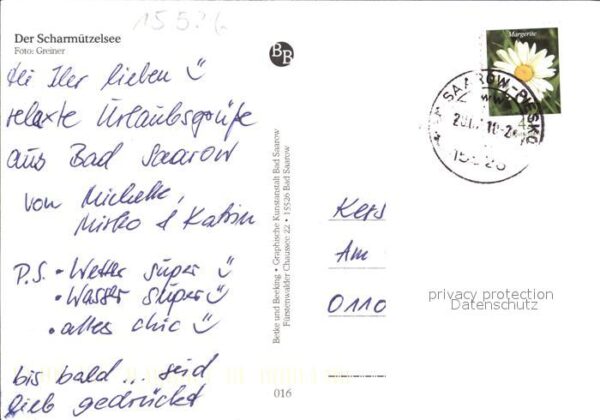 15526
Der Scharmützelsee
Foto: Greiner
Hei Ihr lieben
relaxte Urlaubsgrüße
aus Bad Saarow
von Michelle,
Mirko & Katrin
P.S. • Wetter super
• Wasser super
• alles chic
bis bald ... seid
lieb gedrückt
BB
Betke und Beeking • Graphische Kunstanstalt Bad Saarow
Fürstenwalder Chaussee 22 • 15526 Bad Saarow
016
Margerite
SAAROW-PIESKO
15526
Kers
Am
0110
privacy protection
Datenschutz